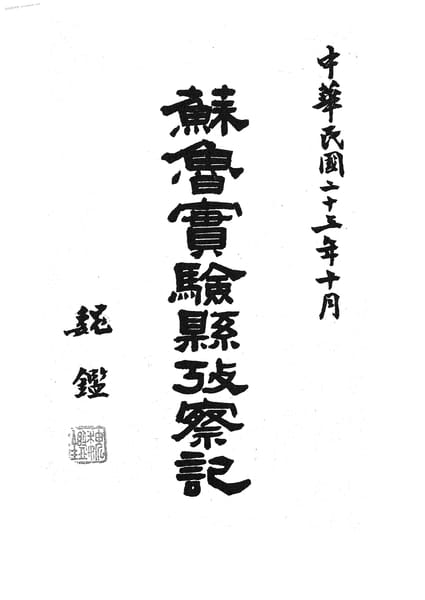 中華民國二十三年十月
蘇魯實驗縣攷察記
魏鑑